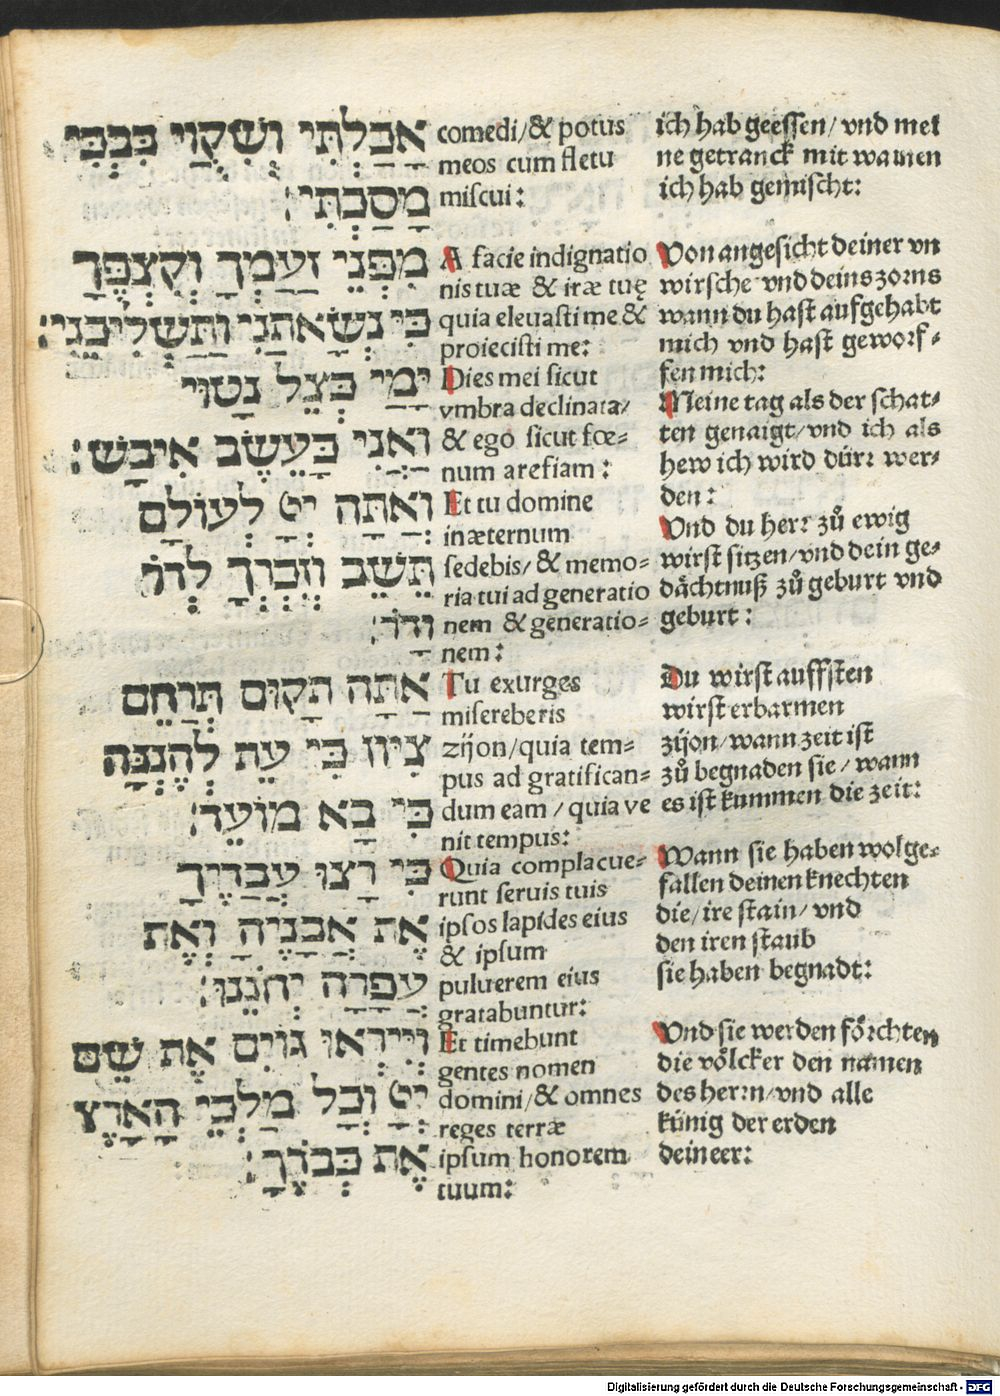 אָכָלְתִּי וְשִׁקֻּוַי בִּבְכִי
מָסָכְתִּי׃
מִפְּנֵי זַעַמְךָ וְקִצְפֶּךָ
כִּי נְשָׂאתַנִי וַתַּשְׁלִיכֵנִי׃
יָמַי כְּצֵל נָטוּי
וַאֲנִי כָּעֵשֶׂב אִיבָשׁ׃
וְאַתָּה יְיָ לְעוֹלָם
תֵּשֵׁב וְזִכְרְךָ לְדֹר
וָדֹר׃
אַתָּה תָקוּם תְּרַחֵם
צִיּוֹן כִּי עֵת לְחֶנְנָהּ
כִּי בָא מוֹעֵד׃
כִּי רָצוּ עֲבָדֶיךָ
אֶת אֲבָנֶיהָ וְאֶת
עֲפָרָהּ יְחֹנֵנוּ׃
וְיִירְאוּ גוֹיִם אֶת שֵׁם
יְיָ וְכָל מַלְכֵי הָאָרֶץ
אֶת כְּבוֹדֶךָ׃
comedi/& potus
meos cum fletu
miſcui:
A facie indignatio
nis tuæ & iræ tuę
quia eleuaſti me &
proiecisti me:
Dies mei ſicut
vmbra declinata/
& ego ſicut fœ=
num arefiam:
Et tu domine
inæternum
ſedebis/& memo=
ria tui ad generatio
nem & generatio=
nem:
Tu exurges
miſereberis
zijon/quia tem=
pus ad gratifican=
dum eam/quia ve
nit tempus:
Quia complacue=
runt ſeruis tuis
ipſos lapides eius
& ipſum
puluerem eius
gratabuntur:
Et timebunt
gentes nomen
domini/& omnes
reges terræ
ipſum honorem
tuum:
ich hab geeſſen/vnd mei
ne getranck mit wainen
ich hab gemiſcht:
Von angeſicht deiner vn
wirſche vnd deins zorns
wann du haſt aufgehabt
mich vnd haſt geworf=
fen mich:
Meine tag als der ſchat=
ten genaigt/vnd ich als
hew ich wird dürr wer=
den:
Vnd du herr zuͦ ewig
wirſt ſitzen/vnd dein ge=
dächtnuß zuͦ geburt vnd
geburt:
Du wirſt auffſten
wirſt erbarmen
zijon/wann zeit iſt
zuͦ begnaden ſie/wann
es iſt kummen die zeit:
Wann ſie haben wolge=
fallen deinen knechten
die/ire ſtain/vnd
den iren ſtaub
ſie haben begnadt:
Vnd ſie werden förchten
die völcker den namen
des herrn/vnd alle
künig der erden
dein eer:
Digitalisierung gefördert durch die Deutsche Forschungsgemeinschaft - DFG